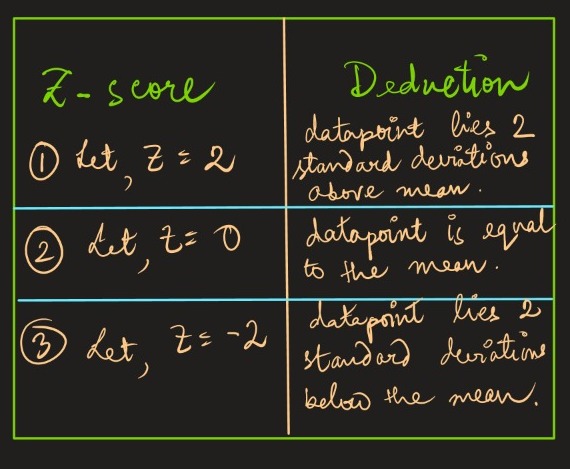 Z-score
Deduction
① Let, Z = 2
datapoint lies 2
standard deviations
above mean.
② Let, Z = 0
datapoint is equal
to the mean.
③ Let, Z = -2
datapoint lies 2
standard deviations
below the mean.